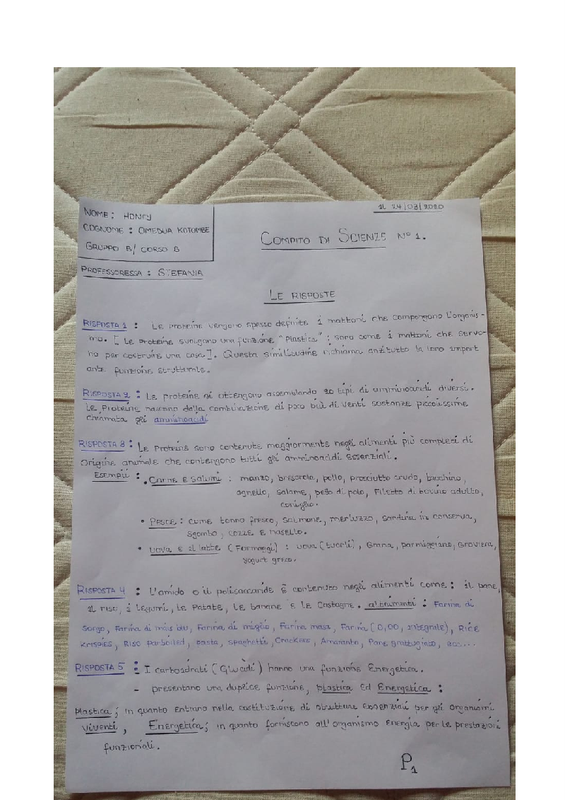 NOME: HONEY
IL 24/03/2020
COGNOME: OMEDWA KOTOMBE
COMPITO DI SCIENZE N° 1.
GRUPPO B/ CORSO B
PROFESSORESSA: STEFANIA
LE RISPOSTE
RISPOSTA 1: Le proteine vengono spesso definite i mattoni che compongono l'organis-
mo. [Le proteine svolgono una funzione "Plastica"; sono come i mattoni che servo-
no per costruire una casa]. Questa similitudine richiama anzitutto la loro import
ante funzione strutturale.
RISPOSTA 2: Le proteine si ottengono assemblando 20 tipi di amminoacidi diversi.
Le Proteine nascono dalla combinazione di poco più di venti sostanze piccolissime
chiamate gli amminoacidi
RISPOSTA 3: Le Proteine sono contenute maggiormente negli alimenti più complessi di
origine animale che contengono tutti gli amminoacidi essenziali.
Esempi: • Carne e salumi: manzo, bresaola, pollo, prosciutto crudo, tacchino,
agnello, salame, petto di pollo, filetto di bovino adulto,
coniglio.
• PESCE: come tonno fresco, salmone, merluzzo, sardina in conserva,
sgombro, cozze e nasello.
• Uova e il latte (Formaggi): uova (tuorli), Grana, parmigiano, groviera,
yogurt greco.
RISPOSTA 4: L'amido o il polisaccaride è contenuto negli alimenti come: il pane,
il riso, i legumi, le Patate, le banane e le Castagne. altrimenti: Farina di
Sorgo, Farina di miglio, Farina mais, Farina (0,00, integrale), Rice
Krispies, Riso Parboiled, Pasta, spaghetti, Crackers, Amaranto, Pane grattugiato, ecc...
RISPOSTA 5: - I carboidrati (Glucidi) hanno una funzione Energetica.
- presentano una duplice funzione, plastica Ed Energetica:
Plastica; in quanto Entrano nella costituzione di strutture Essenziali per gli organismi
viventi, Energetica; in quanto forniscono all'organismo Energia per le prestazioni
funzionali.
P1